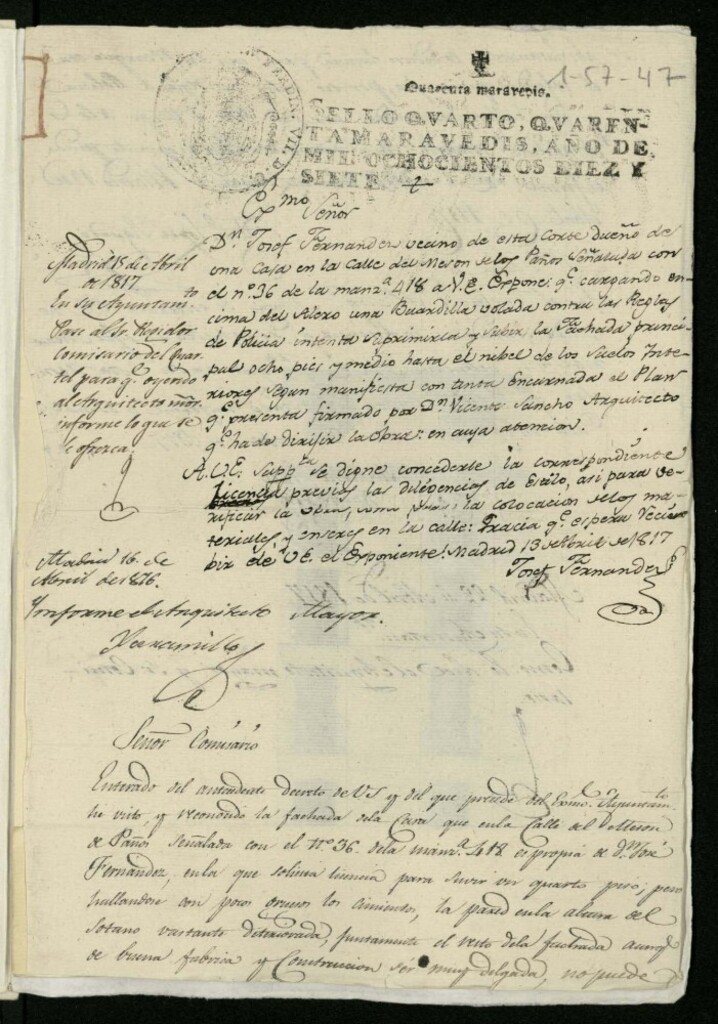 1-57-47
Quarenta maravedis.
SELLO QVARTO, QVAREN-
TA MARAVEDIS, AÑO DE
MIL OCHOCIENTOS DIEZ Y
SIETE
Exmo Señor
Dn. Josef Fernandez vecino de esta Corte dueño de
una casa en la Calle del Meson de los Paños Señalada con
el nº 36 de la manzª 418 a V.E. Expone: q.e cargando en-
cima del Alero una Buardilla volada contra las Reglas
de Policia intenta suprimirla y subir la Fachada princi-
pal ocho pies y medio hasta el nibel de los suelos Inte-
riores segun manifiesta con tinta Encarnada el Plan
q.e presenta firmado por Dn. Vicente Sancho Arquitecto
q.e ha de dirijir la obra: en cuya atencion.
A.V.E. Suppca se digne concederle la correspondiente
licencia previas las diligencias de Estilo, asi para ve-
rificar la obra, como para la colocacion de los ma-
teriales y enseres en la calle: Gracia q.e espera
bir de V.E. el Exponente: Madrid 13 de Abril de 1817
Josef Fernandez
Madrid 15 de Abril
de 1817
En su Ayuntamto
Pase al Sr. Regidor
Comisario del Quar-
tel para q.e oyendo
al Arquitecto mōr.
informe lo que se
le ofrezca.
Madrid 16 de
Abril de 1816.
Ynforme el Arquitecto Mayor.
Señor Comisario
Enterado del antecedente decreto de VS y del que precede del Exmo. Ayuntamto
he visto, y reconocido la fachada de la Casa que en la Calle del Meson
de Paños señalada con el nº 36. de la manzª 418 es propia de Dn. José
Fernandez, en la que solicita licencia para suvir un quarto piso; pero
hallandose con poco grueso los cimientos, la pared en la altura del
sotano vastante deteriorada, juntamente el resto de la fachada aunq.e
de buena fabrica y Construccion ser muy delgada, no puede